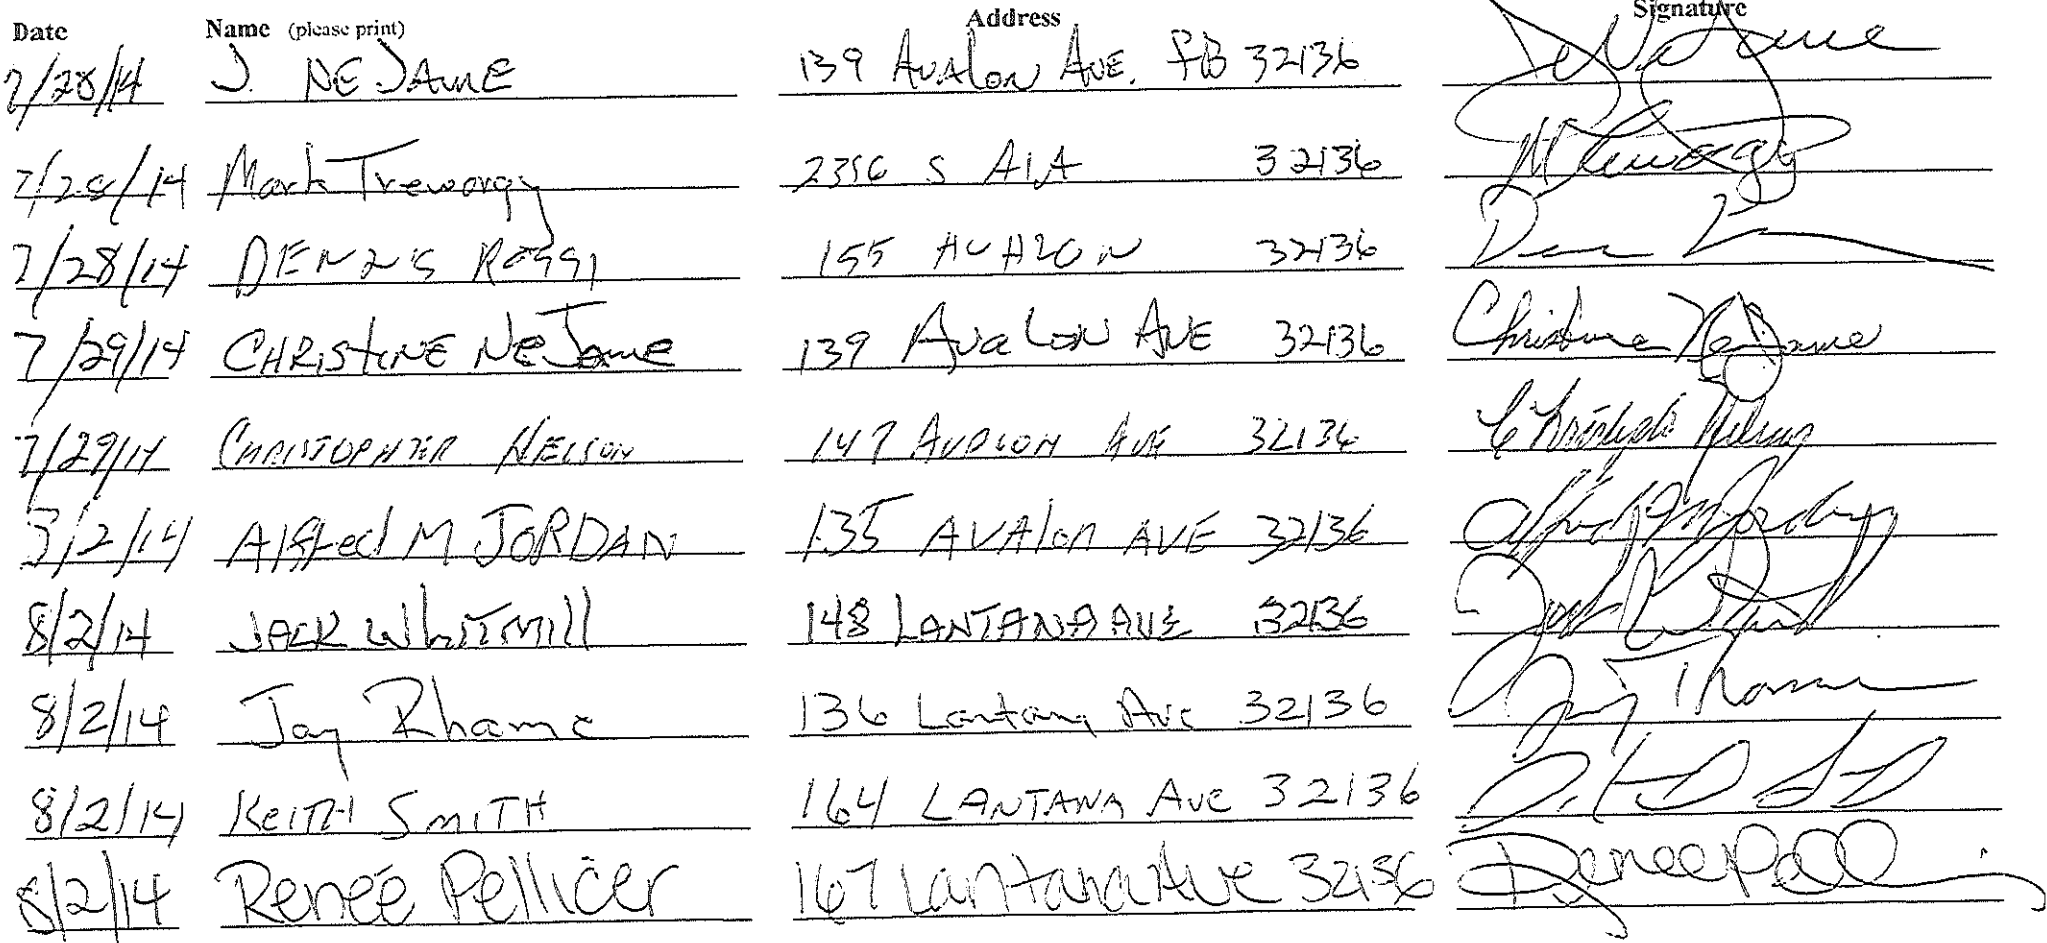 Date Name (please print) Address Signature
7/28/14 J. NEJAME 139 AVALON AVE. FB 32136 J NeJame
7/28/14 Mark Treworgy 2356 S A1A 32136 M Treworgy
7/28/14 DENNIS ROSSI 155 AVALON 32136
7/29/14 CHRISTINE NEJame 139 AvaLON AVE 32136 Christine NeJame
7/29/14 CHRISTOPHER NELSON 147 AVALON AVE 32136 Christopher Nelson
8/2/14 Alfred M JORDAN 135 AVAlon AVE 32136 Alfred M Jordan
8/2/14 JACK WhITMIll 148 LANTANA AVE 32136 Jack Whitmill
8/2/14 Jay Rhame 136 Lantana Ave 32136 Jay Rhame
8/2/14 KEITH SMITH 164 LANTANA AVE 32136
8/2/14 Renée Pellicer 167 Lantana Ave 32136 Renee Pellicer